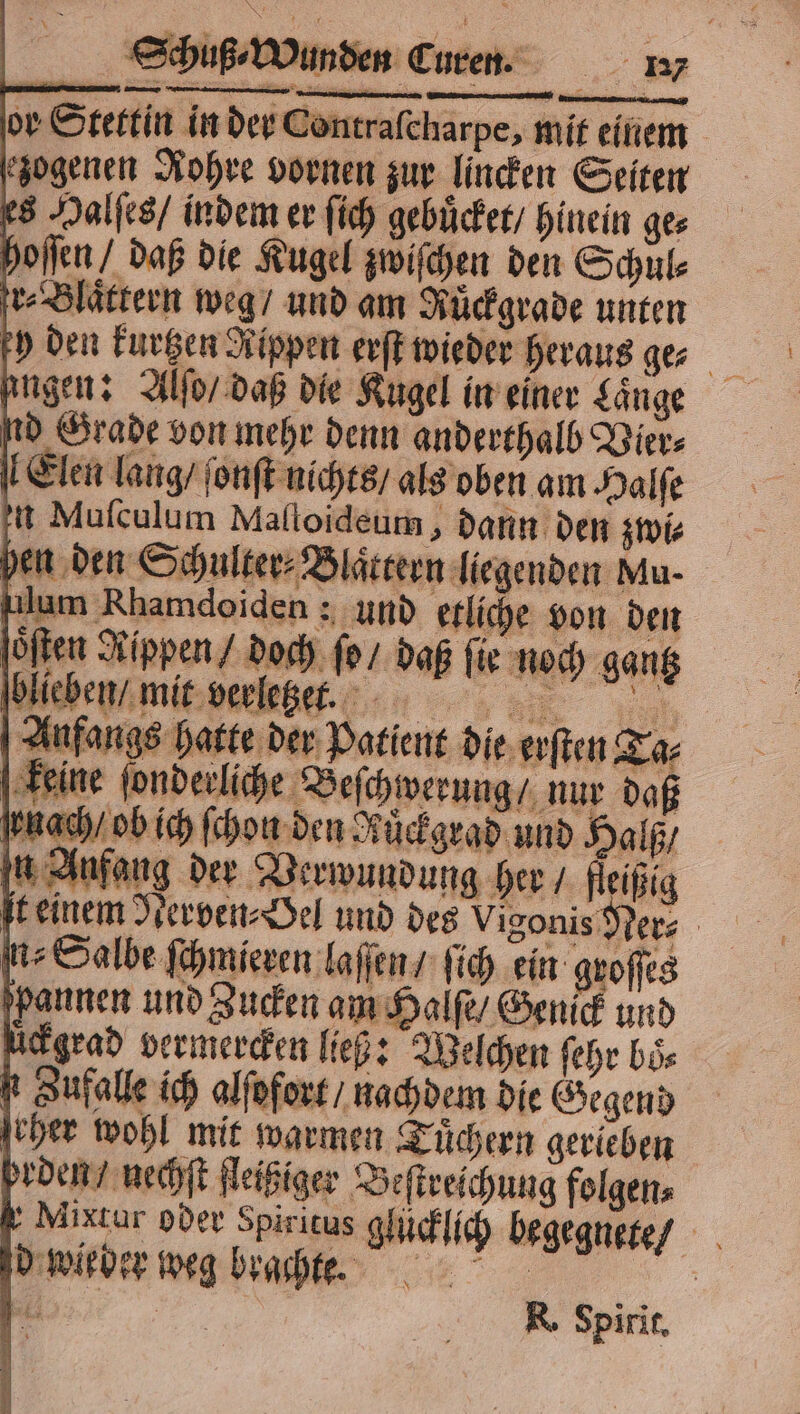 Schuß-Wunden Curen. 127
or Stettin in der Contraſcharpe, mit einem
ezogenen Rohre vornen zur lincken Seiten
es Halſes/ indem er ſich gebuͤcket/ hinein ge⸗
hoſſen/ daß die Kugel zwiſchen den Schul⸗
r⸗Blaͤttern weg/ und am Ruͤckgrade unten
ey den kurtzen Rippen erſt wieder heraus ge⸗
angen: Alſo/ daß die Kugel in einer Laͤnge
nd Grade von mehr denn anderthalb Vier⸗
l Elen lang/ ſonſt nichts/ als oben am Halſe
en Muſculum Maſtoideum, dann den zwi⸗
hen den Schulter⸗Blaͤttern liegenden Mu-
ulum Rhamdoiden: und etliche von den
oͤſten Rippen/ doch ſo/ daß ſie noch gantz
blieben/ mit verletzet.
Anfangs hatte der Patient die erſten Ta⸗
keine ſonderliche Beſchwerung/ nur daß
rnach/ ob ich ſchon den Ruͤckgrad und Halß/
n Anfang der Verwundung her/ fleißig
it einem Nerven⸗Oel und des Vigonis Ner⸗
n⸗Salbe ſchmieren laſſen/ ſich ein groſſes
pannen und Zucken am Halſe/ Genick und
uͤckgrad vermercken ließ: Welchen ſehr boͤ⸗
n Zufalle ich alſofort/ nachdem die Gegend
rher wohl mit warmen Tuͤchern gerieben
orden/ nechſt fleißiger Beſtreichung folgen⸗
r Mixtur oder Spiritus gluͤcklich begegnete/
d wieder weg brachte.
R. Spirit.